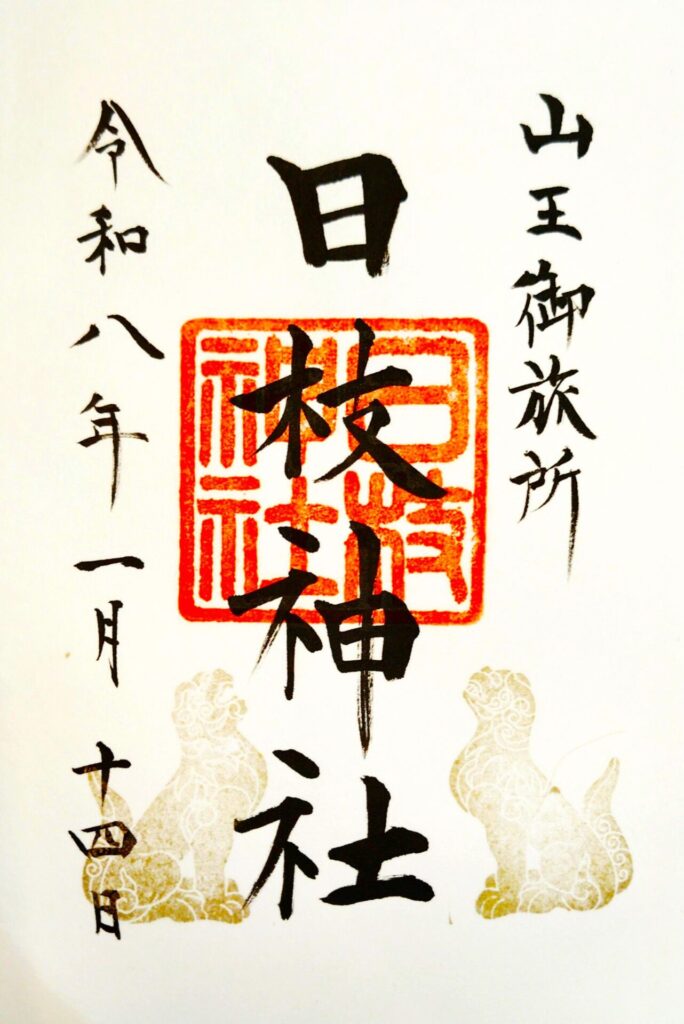 山王御旅所
日枝神社
日枝
神社
令和八年一月十四日